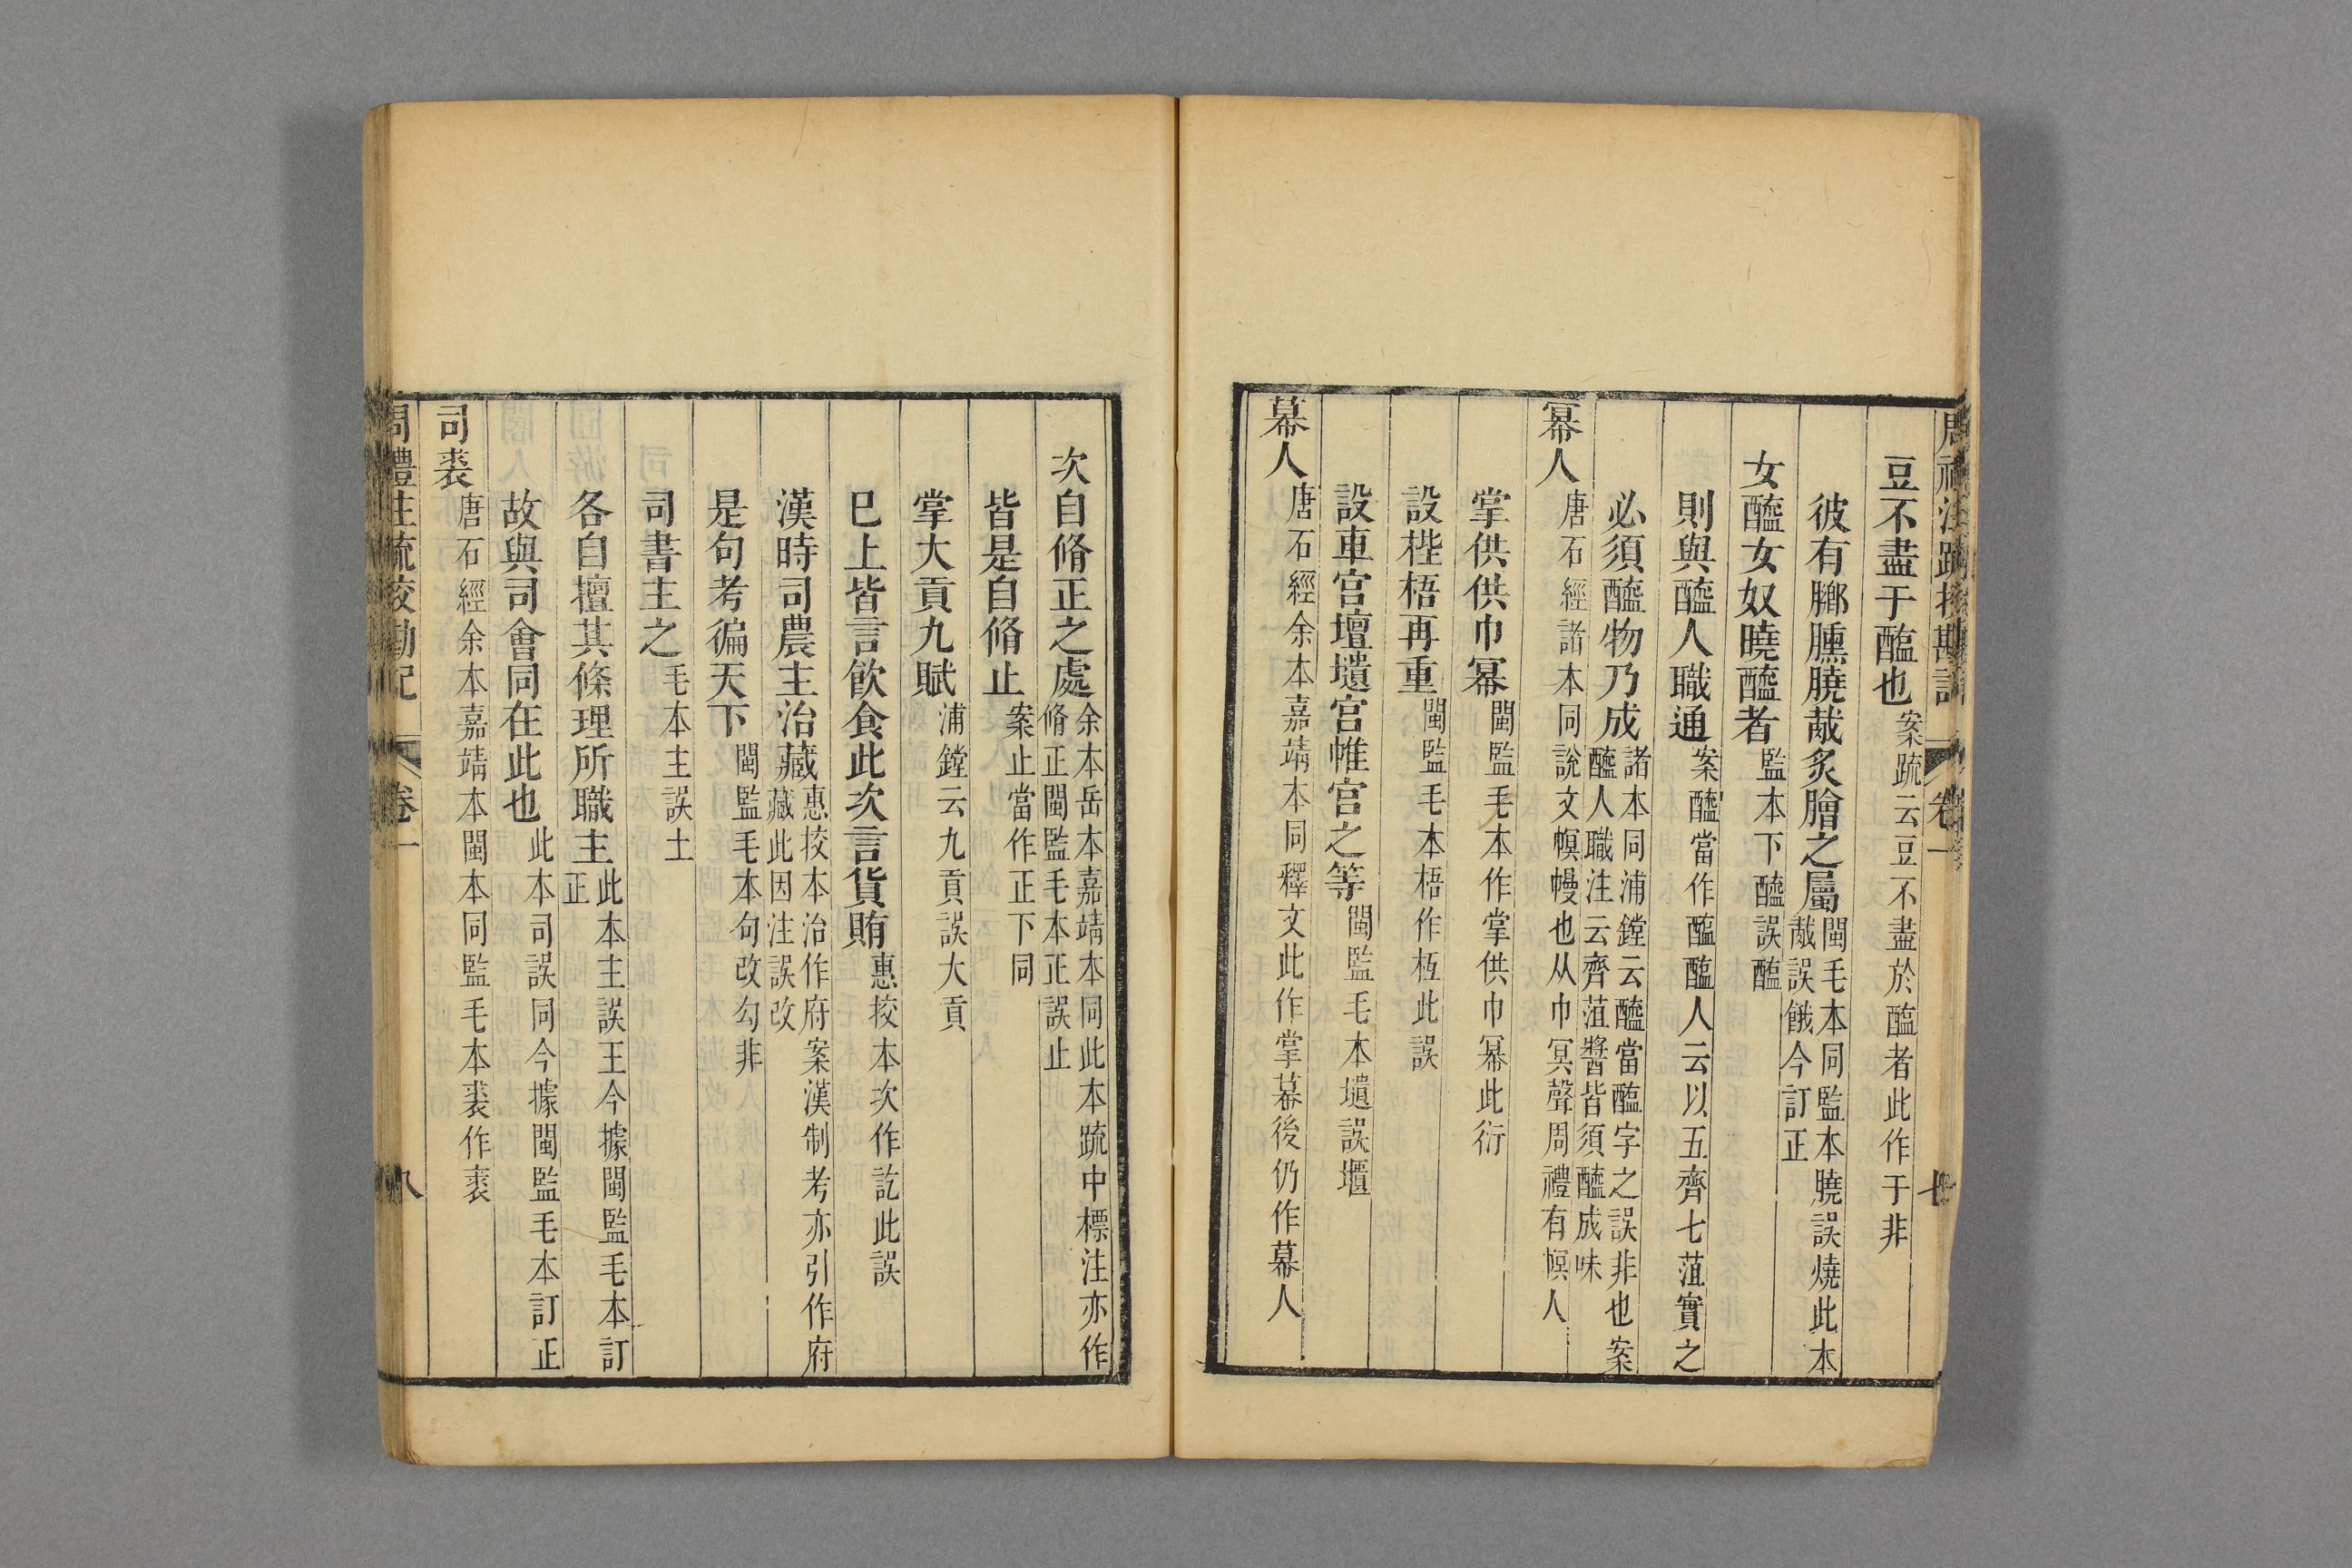 周禮注疏挍勘記 卷一 七
豆不盡于醢也案疏云豆不盡於醢者此作于非
彼有膷臐膮胾炙膾之屬閩毛本同監本膮誤燒此本
胾誤餓今訂正
女醯女奴曉醯者監本下醯誤醢
則與醯人職通案醯當作醢醢人云以五齊七菹實之
必須醯物乃成諸本同浦鏜云醯當醢字之誤非也案
醯人職注云齊菹醬皆須醯成味
冪人唐石經諸本同說文幎幔也从巾冥聲周禮有幎人
掌供供巾冪閩監毛本作掌供巾冪此衍
設梐梧再重閩監毛本梧作枑此誤
設車宮壇壝宮帷宮之等閩監毛本壝誤堰
幕人唐石經余本嘉靖本同釋文此作掌幕後仍作幕人
次自脩正之處余本岳本嘉靖本同此本疏中標注亦作
脩正閩監毛本正誤止
皆是自脩止案止當作正下同
掌大貢九賦浦鏜云九貢誤大貢
巳上皆言飲食此次言貨賄惠挍本次作訖此誤
漢時司農主治藏惠挍本治作府案漢制考亦引作府
藏此因注誤改
是句考徧天下閩監毛本句改勾非
司書主之毛本主誤土
各自擅其條理所職主此本主誤王今據閩監毛本訂
正
故與司會同在此也此本司誤同今據閩監毛本訂正
司裘唐石經余本嘉靖本閩本同監毛本裘作裘
周禮注疏挍勘記 卷一 八